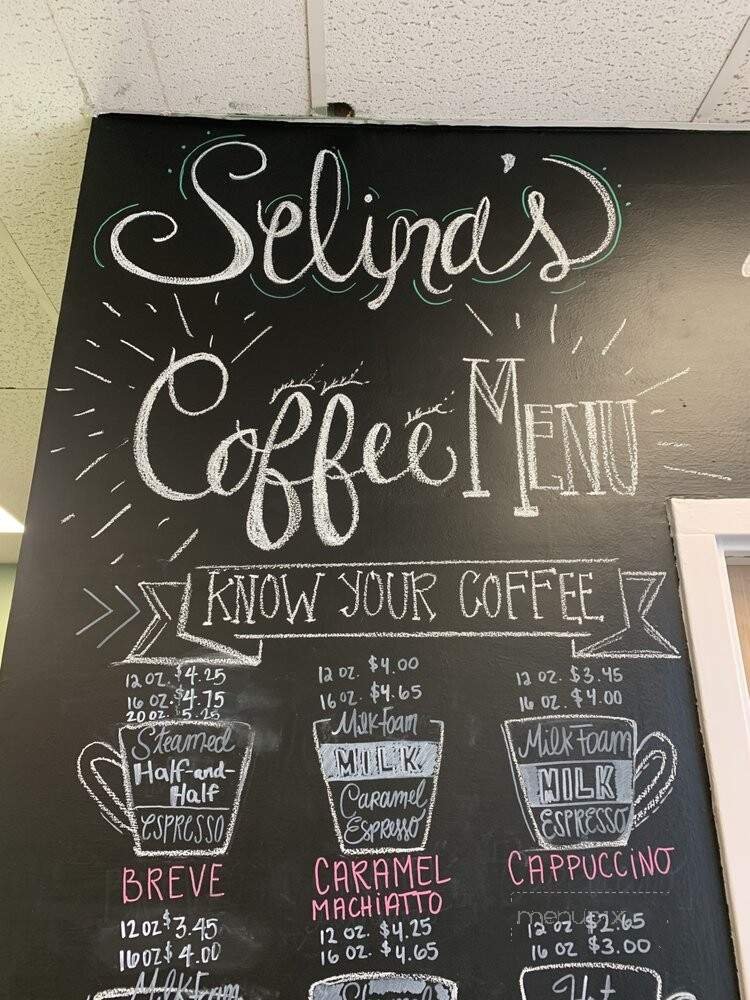 Selina's
Coffee MENU
KNOW YOUR COFFEE
12 OZ. $4.25
16 OZ. $4.75
20 OZ. $5.25
Steamed
Half-and-
Half
ESPRESSO
BREVE
12 OZ. $4.00
16 OZ. $4.65
Milk Foam
MILK
Caramel
Espresso
CARAMEL
MACHIATTO
12 OZ. $3.45
16 OZ. $4.00
Milk Foam
MILK
ESPRESSO
CAPPUCCINO
12 OZ $3.45
16 OZ $4.00
Milk Foam
12 OZ. $4.25
16 OZ. $4.65
menupix
12 OZ $2.65
16 OZ $3.00
Hot